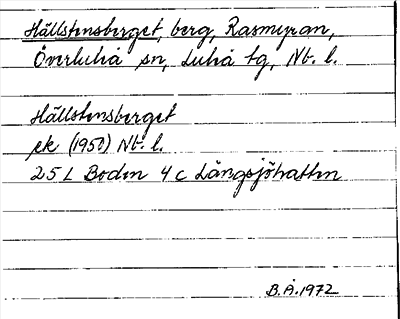 Hällstensberget, berg, Rasmyran,
Överluleå sn, Luleå tg, Nb. l.
Hällstensberget
ek (1950) Nb. l.
25 L Boden 4 c Långsjöhatten
B.Å. 1972